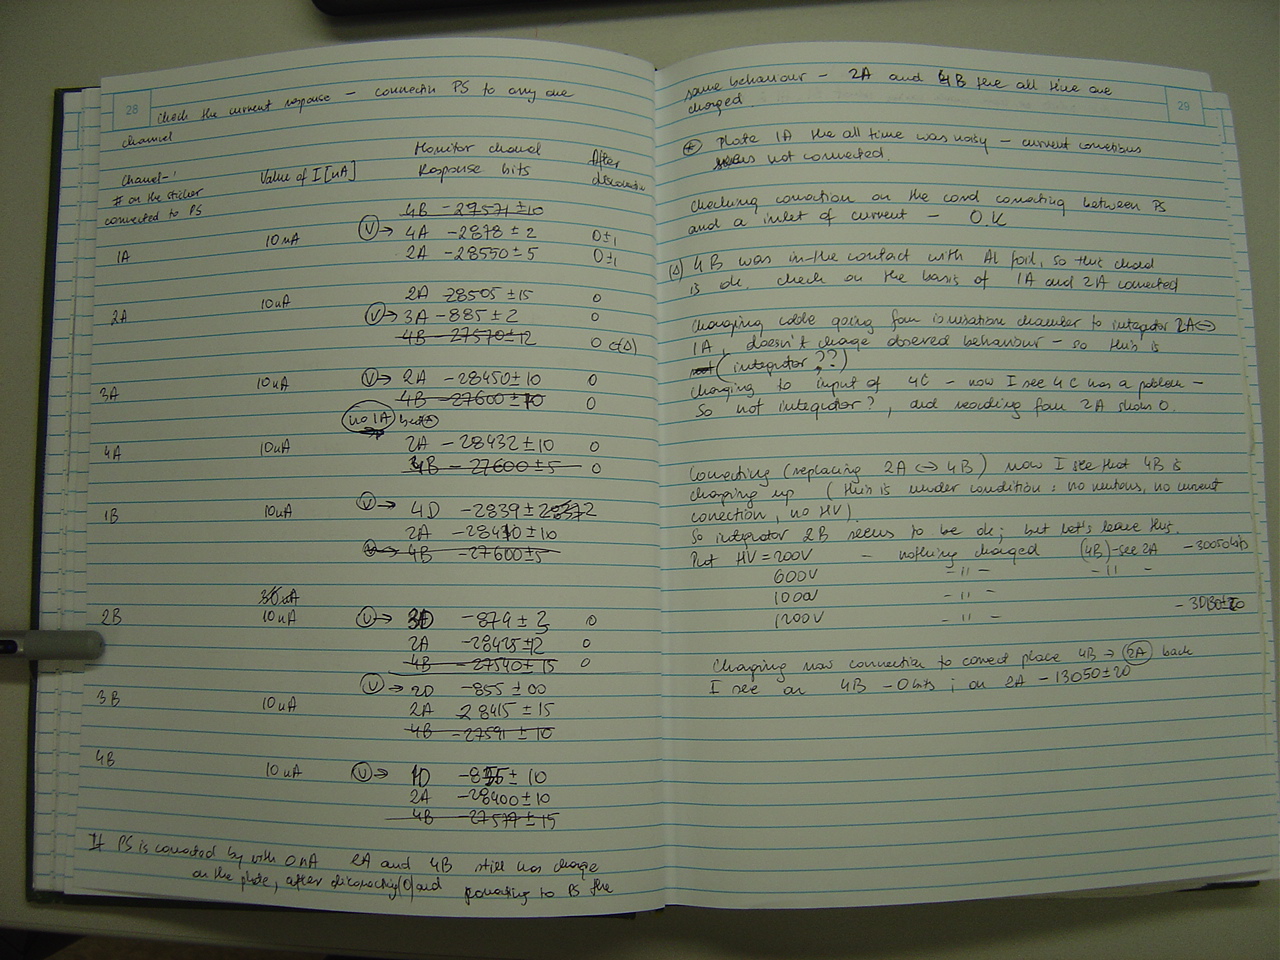 28
check the current response - connectin PS to any one
channel
Channel-
# on the sticker
connected to PS
Value of I [nA]
Monitor channel
Response bits
After
disconection
4B -27571 ± 10
1A 10 nA (V)→ 4A -2878 ± 2 0±1
2A -28550 ± 5 0±1
2A -28505 ± 15 0
2A 10nA (V)→ 3A -885 ± 2 0
4B -27570 ± 12 0 (Δ)
3A 10nA (V)→ 2A -28450 ± 10 0
4B -27600 ± 10 0
no 1A
4A 10nA 2A -28432 ± 10 0
4B -27600 ± 5 0
1B 10nA (V)→ 4D -2839 ± 2
2A -28410 ± 10
(V)→ 4B -27600 ± 5
30 nA
2B 10nA (V)→ 3D -874 ± 3 0
2A -28425 ± 12 0
4B -27540 ± 15 0
(V)→ 2D -855 ± 00
3B 10nA 2A 28415 ± 15
4B -27591 ± 10
4B 10nA (V)→ 1D -855 ± 10
2A -28400 ± 10
4B -27577 ± 15
If PS is conected by with 0 nA 2A and 4B still has charge
on the plate, after disconecting (0) and conecting to PS the
29
same behaviour - 2A and 4B the all time are
charged
(*) Plate 1A the all time was noisy - current conections
seems not connected.
Checking conection on the cord conecting between PS
and a inlet of current - O.K
(Δ) 4B was in the contact with Al foil, so this chanel
is ok. check on the basis of 1A and 2A conected
Changing cable going from ionisation chamber to integrator 2A↔
1A, doesn't change observed behaviour - so this is
not (integrator ??)
changing to input of 4C - now I see 4C has a poblem -
So not integrator?, and reading from 2A shows 0.
Conecting (replacing 2A ↔ 4B) now I see that 4B is
charging up (this is under condition: no neutrons, no current
conection, no HV).
So integrator 2B seems to be ok; but let's leave this.
Put HV = 200V - nothing charged (4B)-see 2A -30050 bits
600V - 11 - - 11 -
1000V - 11 -
1200V - 11 - - 30130±20
Changing now connection to corect place 4B → (2A) back
I see on 4B - 0 bits ; on 2A - 13050 ± 20